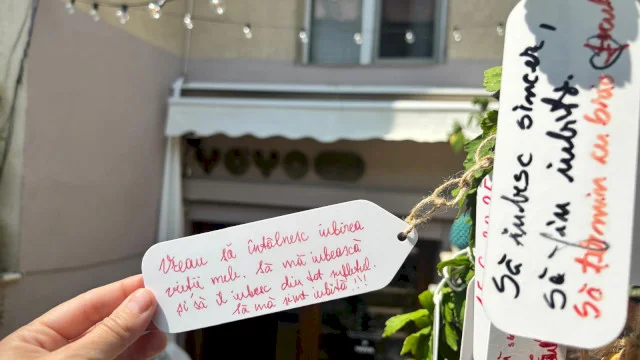 Vreau să întâlnesc iubirea
vieții mele. Să mă iubească
și să îl iubesc din tot sufletul.
Să mă simt iubită!!!
Să iubesc sincer,
Să fiu iubită.
Să termin cu bine
yoyo